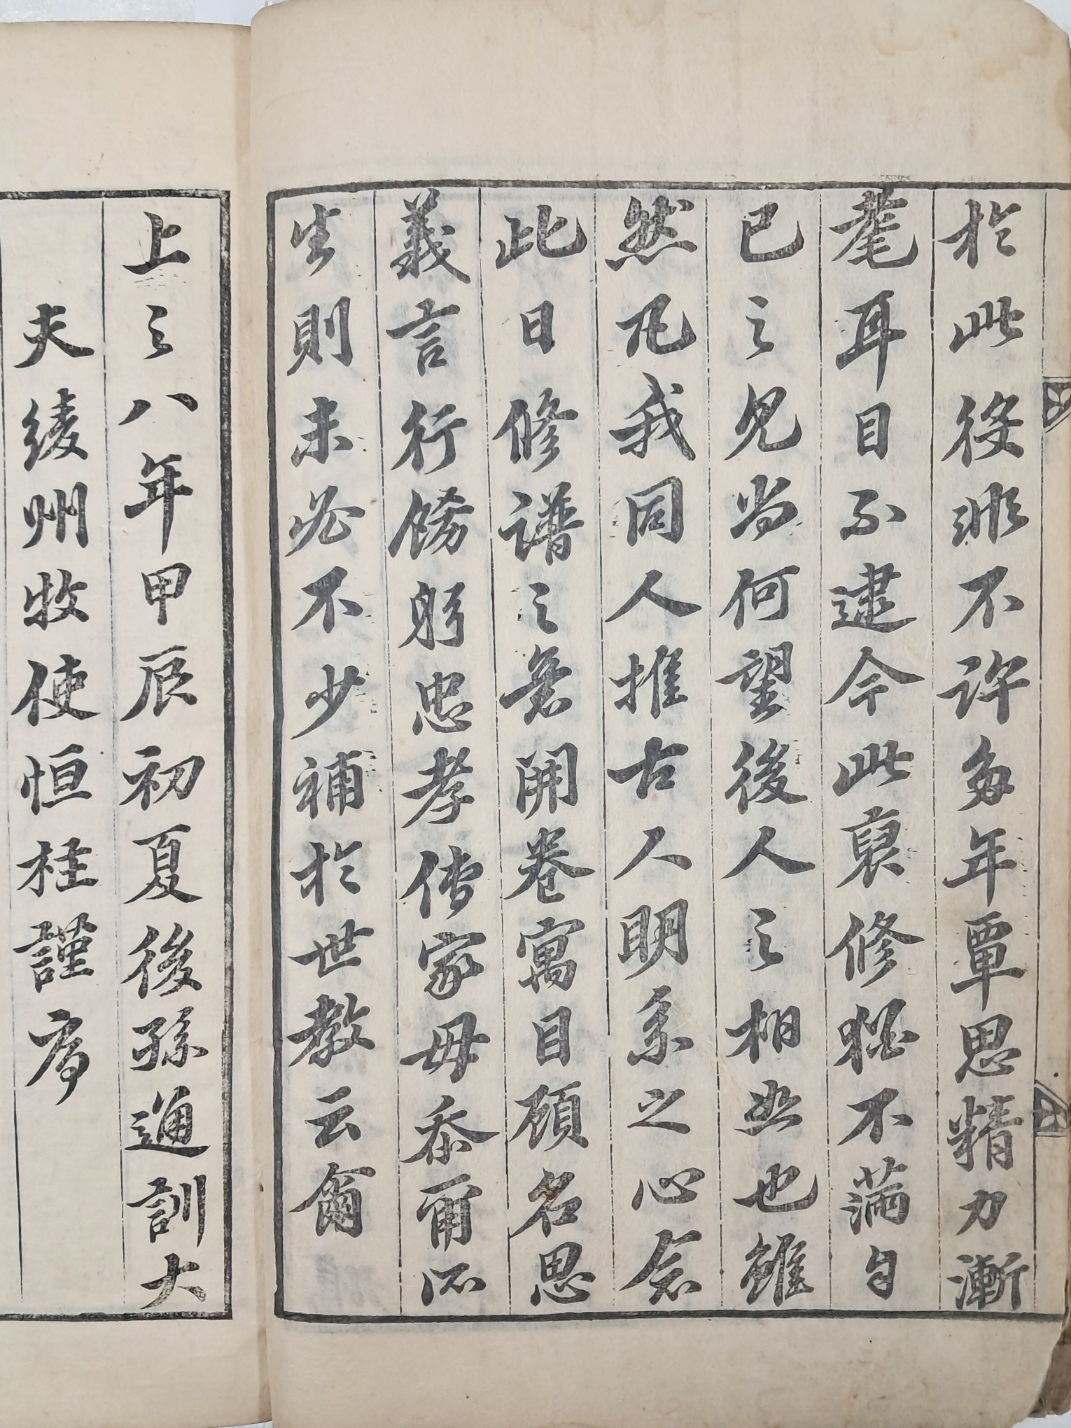 於此役非不許多年覃思精力漸
耄耳目不逮今此裒修猶不滿自
己之見尙何望後人之相照也雖
然凡我同人推古人明系之心念
此日修譜之意開卷寓目顧名思
義言行飭躬忠孝傳家毋忝爾所
生則未必不少補於世敎云爾
上之八年甲辰初夏後孫通訓大
夫綾州牧使恒柱謹序